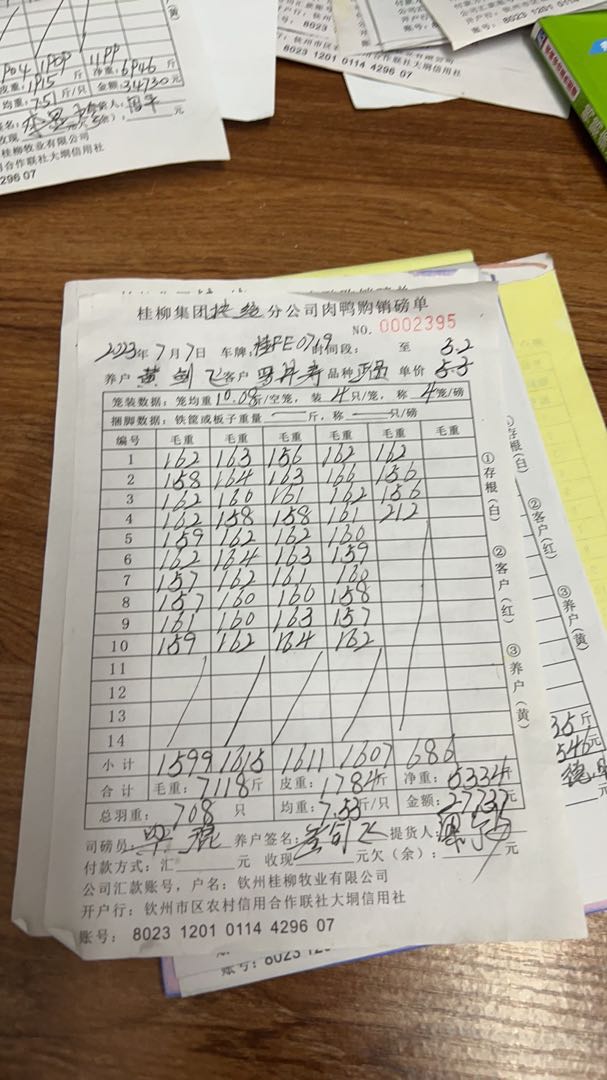 皮重: 1915 斤 净重: 6946 斤
均重: 7.51 斤/只 金额: 34730 元
桂柳牧业有限公司
合作联社大垌信用社
4296 07
8023 1201 0114 4296 07
账号: 8023 1201
桂柳集团 分公司肉鸭购销磅单
NO. 0002395
2023年 7月7日 车牌: 桂FE0719 时间段: 至 5.2
养户 黄剑飞 客户 品种 单价 5.3
笼装数据: 笼均重 10.08 斤/空笼, 装 4 只/笼, 称 4 笼/磅
捆脚数据: 铁筐或板子重量 — 斤, 称 — 只/磅
编号 毛重 毛重 毛重 毛重 毛重 毛重
1 162 163 156 162 162
2 158 164 163 166 156
3 162 160 161 162 156
4 162 158 158 161 212
5 159 162 162 160
6 162 164 163 159
7 157 162 161 160
8 157 160 160 158
9 161 160 163 157
10 159 162 164 162
11
12
13
14
小计 1599 1615 1611 1607 686
合计 毛重: 7118 斤 皮重: 1784 斤 净重: 5334 斤
总羽重: 708 只 均重: 7.53 斤/只 金额: 27737 元
司磅员: 养户签名: 提货人:
付款方式: 汇 元 收现 元欠(余): 元
公司汇款账号, 户名: 钦州桂柳牧业有限公司
开户行: 钦州市区农村信用合作联社大垌信用社
账号: 8023 1201 0114 4296 07
①存根(白) ②客户(红) ③养户(黄)
②客户(红)
③养户(黄)